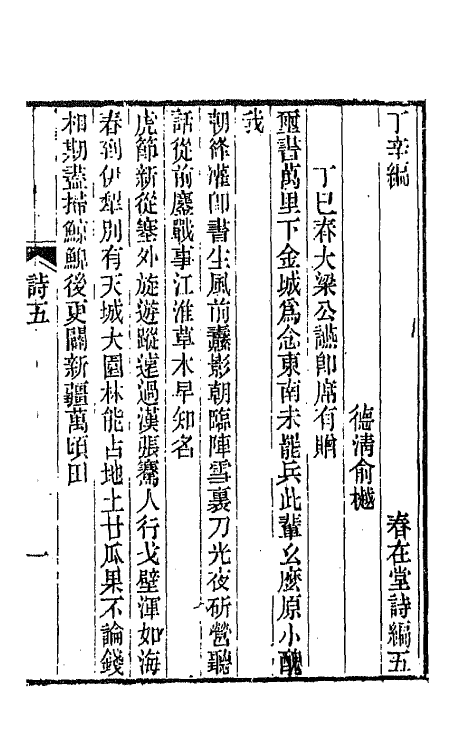 丁辛編　春在堂詩編五
德淸俞樾
丁巳春大梁公讌卽席有贈
璽書萬里下金城爲念東南未罷兵此輩幺麼原小醜
我
朝絳灌卽書生風前纛影朝臨陣雪裏刀光夜斫營聽
話從前鏖戰事江淮草木早知名
虎節新從塞外旋遊蹤遠過漢張騫人行戈壁渾如海
春到伊犂別有天城大園林能占地土甘瓜果不論錢
相期盡掃鯨鯢後更闢新疆萬頃田
詩五　一